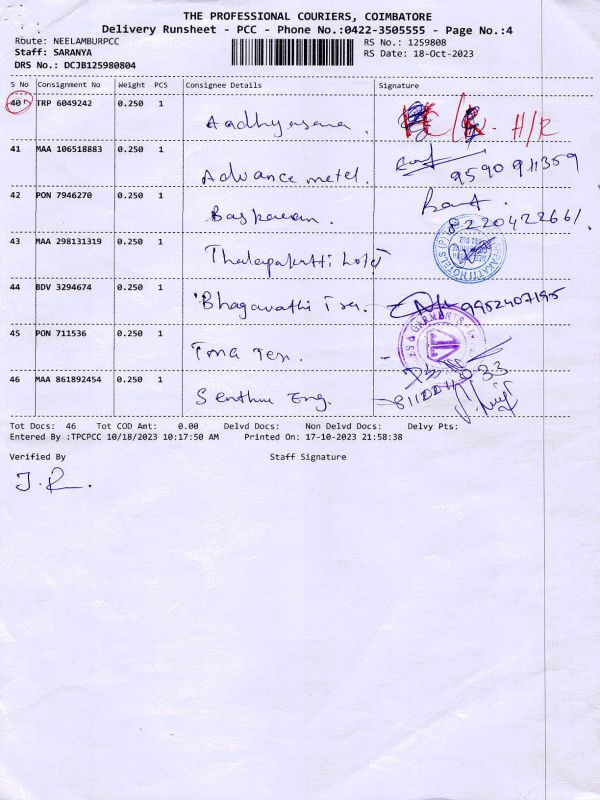 THE PROFESSIONAL COURIERS, COIMBATORE
Delivery Runsheet - PCC - Phone No.:0422-3505555 - Page No.:4
Route: NEELAMBURPCC RS No.: 1259808
Staff: SARANYA RS Date: 18-Oct-2023
DRS No.: DCJB125980804
S No Consignment No Weight PCS Consignee Details Signature
40 TRP 6049242 0.250 1 Aadhyasana. H/R
41 MAA 106518883 0.250 1 Advance metel. 9590911359
42 PON 7946270 0.250 1 Baskaran. 8220422661.
43 MAA 298131319 0.250 1 Thalapakatti hotel
44 BDV 3294674 0.250 1 Bhagavathi Tra. 9952407195
45 PON 711536 0.250 1 Tex.
46 MAA 861892454 0.250 1 Senthur Eng.
Tot Docs: 46 Tot COD Amt: 0.00 Delvd Docs: Non Delvd Docs: Delvy Pts:
Entered By :TPCPCC 10/18/2023 10:17:50 AM Printed On: 17-10-2023 21:58:38
Verified By Staff Signature
J.R.